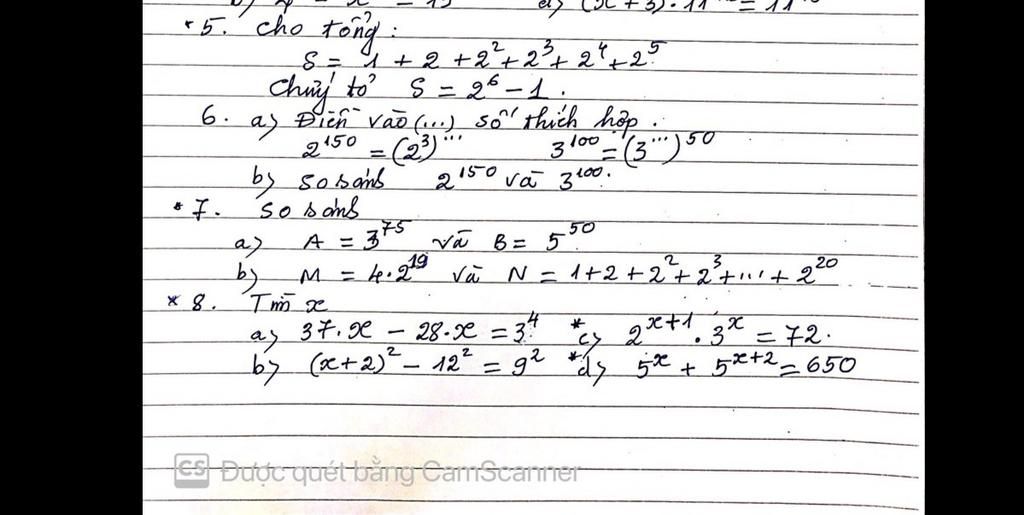 (x+3)·11 = 11
*5. Cho tổng:
S = 1 + 2 + 2² + 2³ + 2⁴ + 2⁵
Chứng tỏ S = 2⁶ - 1.
6. a) Điền vào (...) số thích hợp.
2¹⁵⁰ = (2³)^... 3¹⁰⁰ = (3^...)⁵⁰
b) So sánh 2¹⁵⁰ và 3¹⁰⁰.
*7. So sánh
a) A = 3⁷⁵ và B = 5⁵⁰
b) M = 4·2¹⁹ và N = 1 + 2 + 2² + 2³ + ... + 2²⁰
*8. Tìm x
a) 37·x - 28·x = 3⁴ *c) 2^x+1 · 3^x = 72.
b) (x+2)² - 12² = 9² *d) 5^x + 5^x+2 = 650
CS Được quét bằng CamScanner